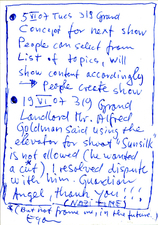 5 VII 07 Tues 319 Grand
Concept for next show
People can select from
List of topics, will
show content accordingly
→ People create show
19 VI 07 319 Grand
Landlord Mr. Alfred
Goldman said using the
elevator for shoot "Sunsilk"
is not allowed (he wanted
a cut) I resolved dispute
with him. Guardian
Angel, thank you!!!
(NAZI TIME)
(But not from me, in the future.)
Ego